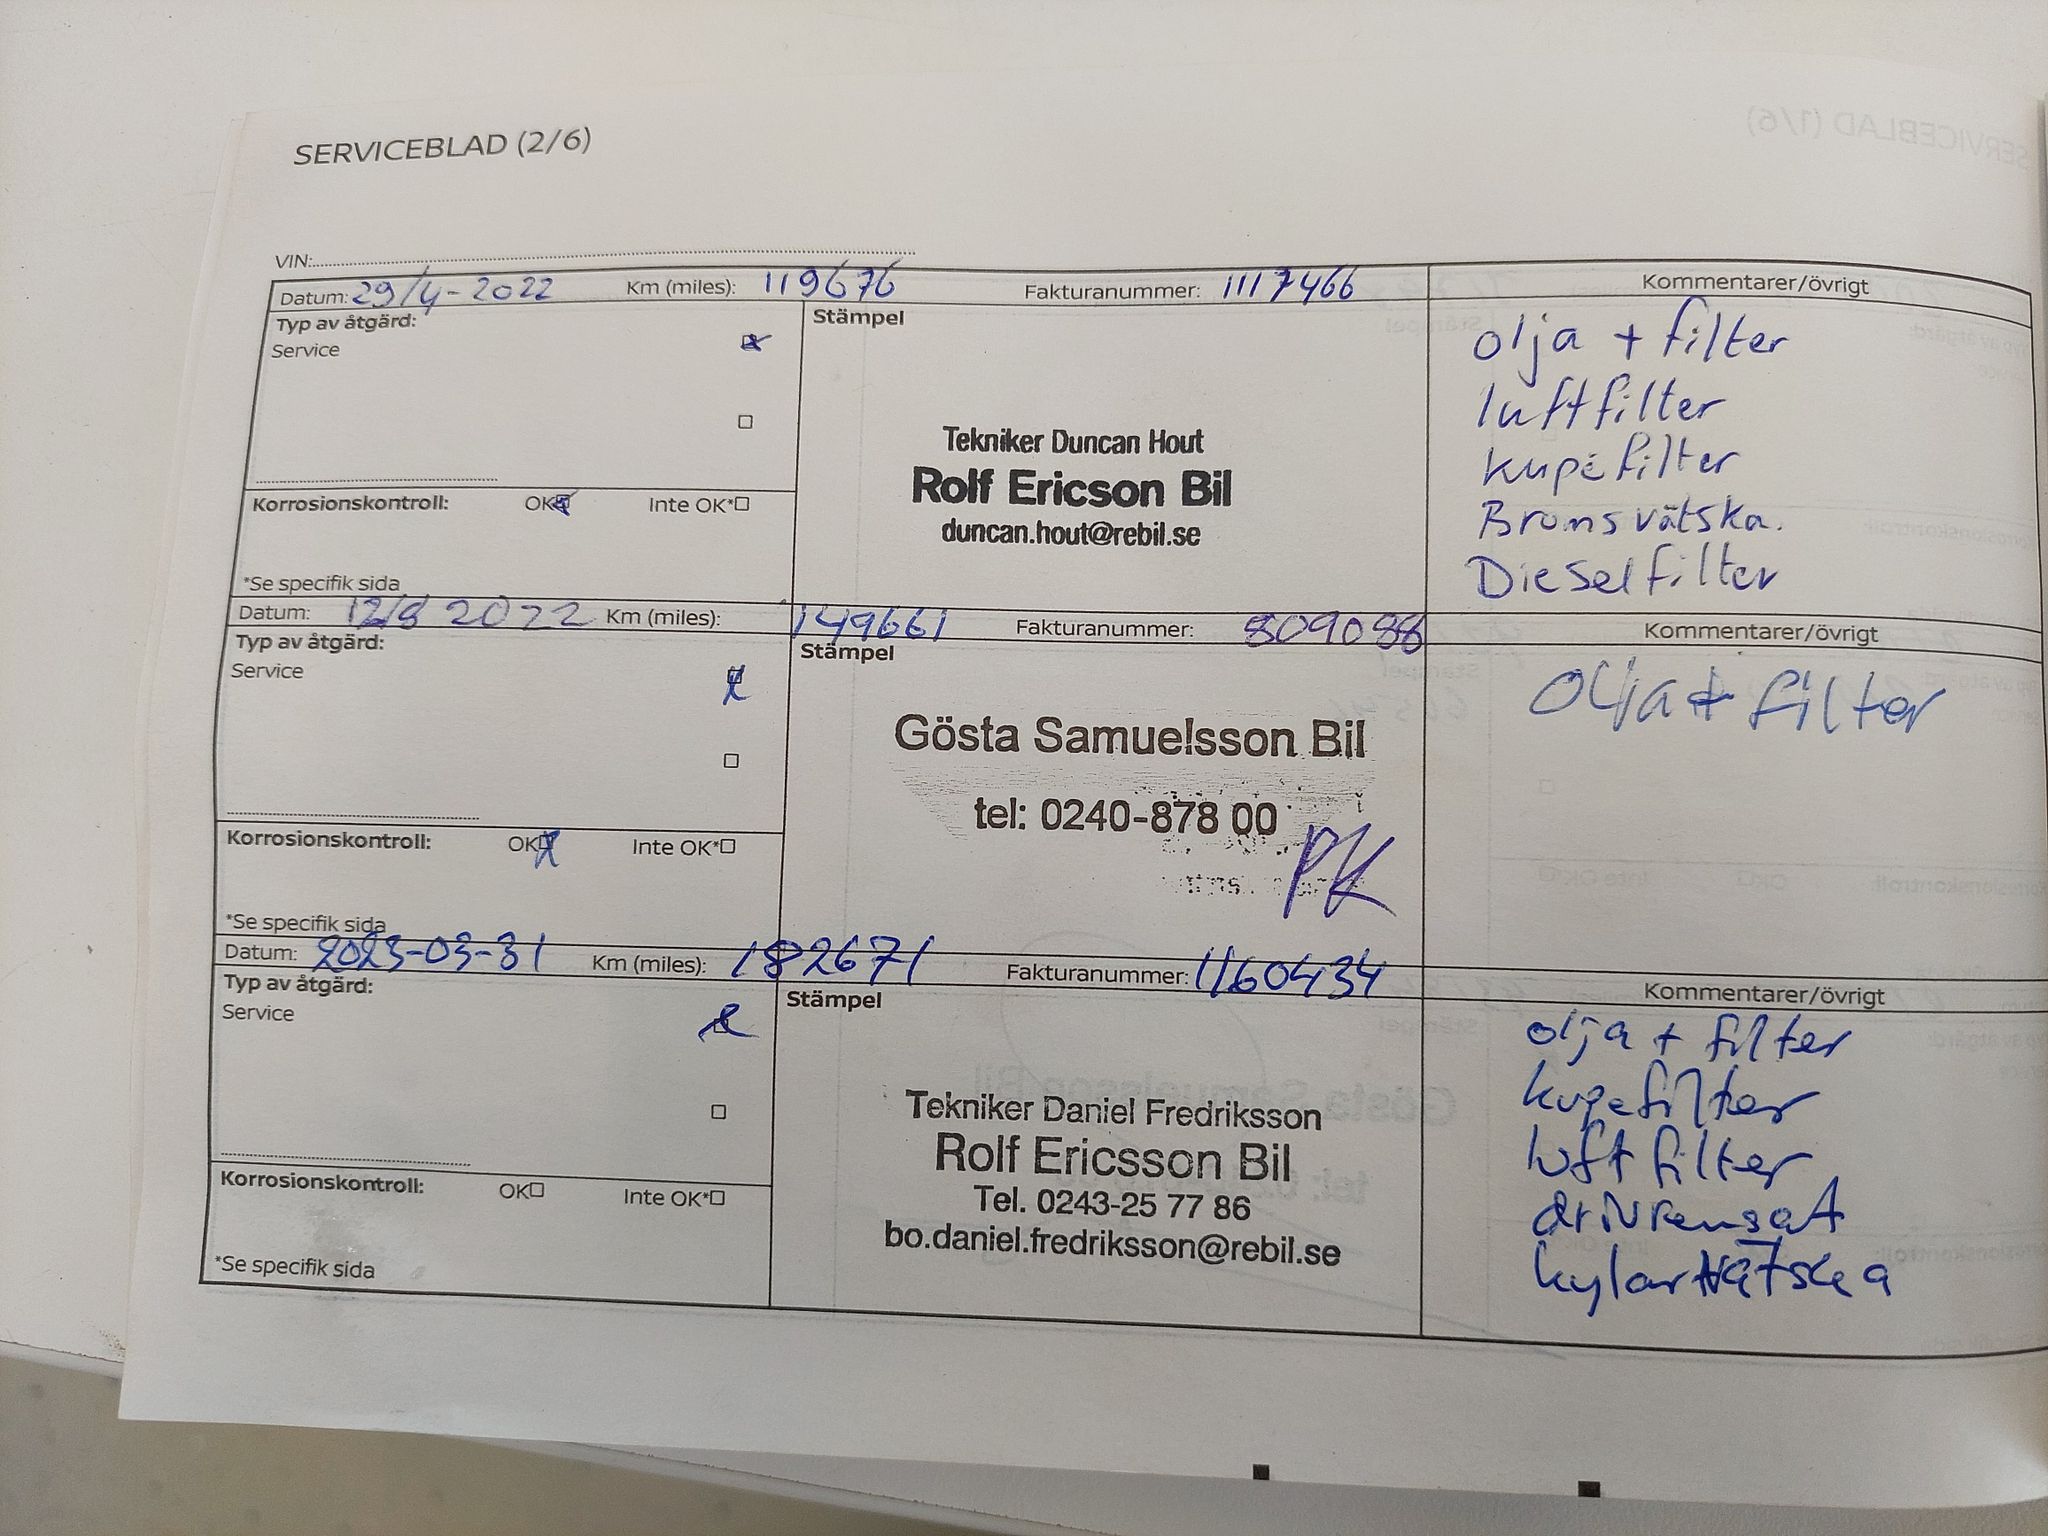 SERVICEBLAD (2/6)
VIN:
Datum: 29/4-2022 Km (miles): 119676 Fakturanummer: 1117466 Kommentarer/övrigt
Typ av åtgärd:
Service
Stämpel
Tekniker Duncan Hout
Rolf Ericson Bil
duncan.hout@rebil.se
olja + filter
luftfilter
kupefilter
Bromsvätska.
Dieselfilter
Korrosionskontroll: OK Inte OK*
*Se specifik sida
Datum: 12/8 2022 Km (miles): 149661 Fakturanummer: 809088 Kommentarer/övrigt
Typ av åtgärd:
Service
Stämpel
Gösta Samuelsson Bil
tel: 0240-878 00
PK
Olja + filter
Korrosionskontroll: OK Inte OK*
*Se specifik sida
Datum: 2023-03-31 Km (miles): 182671 Fakturanummer: 1160434 Kommentarer/övrigt
Typ av åtgärd:
Service
Stämpel
Tekniker Daniel Fredriksson
Rolf Ericsson Bil
Tel. 0243-25 77 86
bo.daniel.fredriksson@rebil.se
olja + filter
kupefilter
luftfilter
drivremsat
kylarvätska
Korrosionskontroll: OK Inte OK*
*Se specifik sida